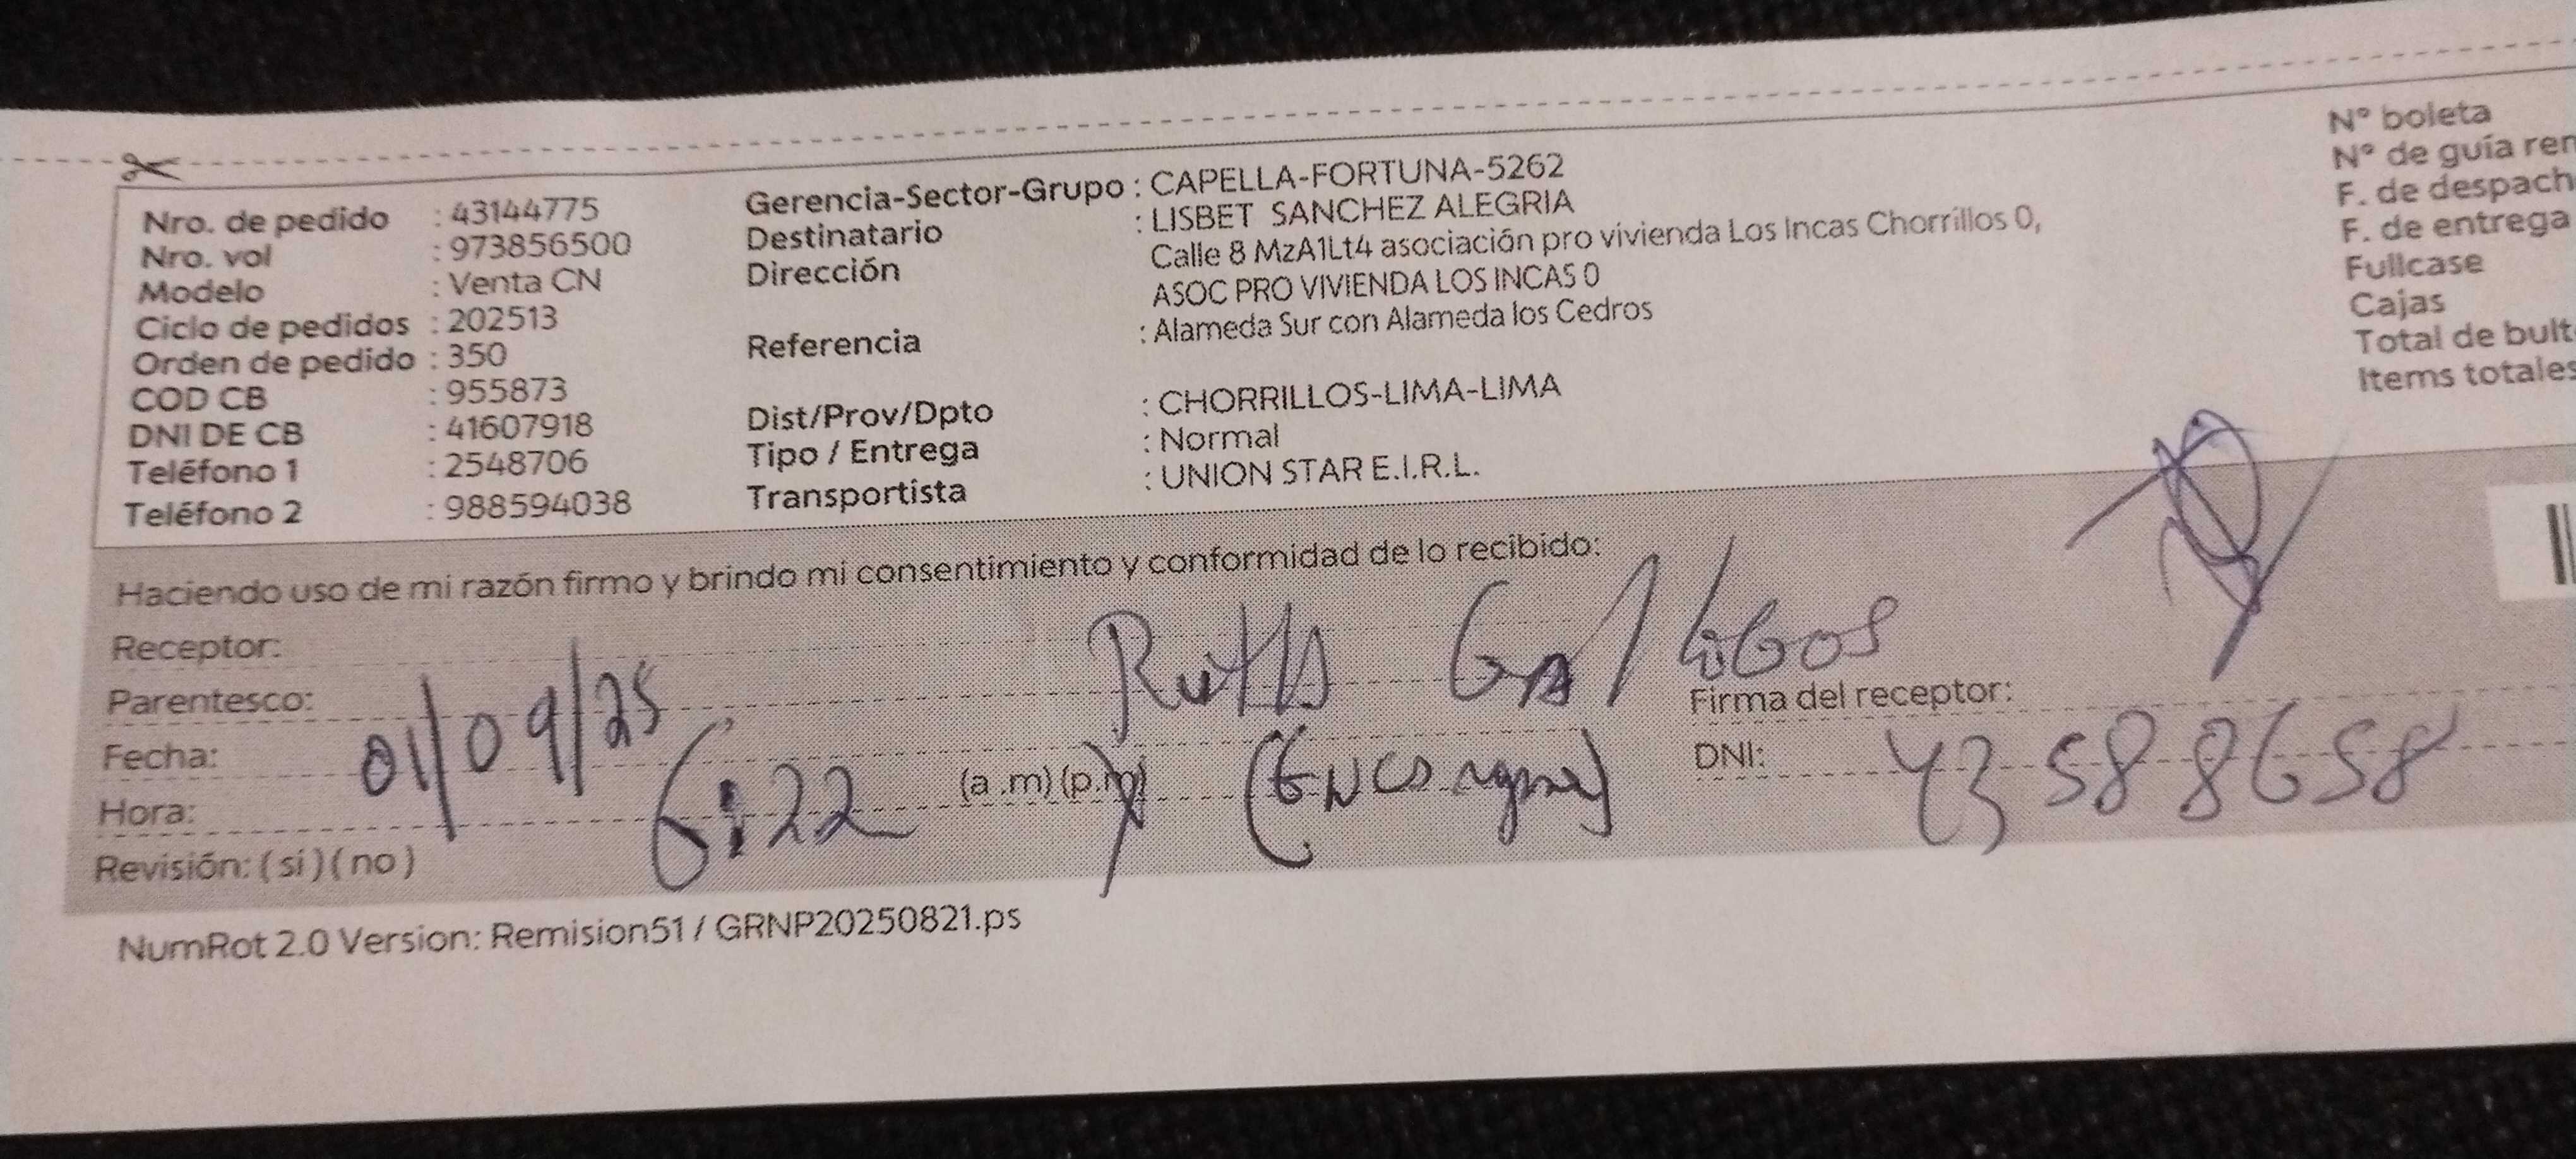 Nro. de pedido : 43144775
Nro. vol : 973856500
Modelo : Venta CN
Ciclo de pedidos : 202513
Orden de pedido : 350
COD CB : 955873
DNI DE CB : 41607918
Teléfono 1 : 2548706
Teléfono 2 : 988594038
Gerencia-Sector-Grupo : CAPELLA-FORTUNA-5262
Destinatario : LISBET SANCHEZ ALEGRIA
Dirección Calle 8 MzA1Lt4 asociación pro vivienda Los Incas Chorrillos 0,
ASOC PRO VIVIENDA LOS INCAS 0
Referencia : Alameda Sur con Alameda los Cedros
Dist/Prov/Dpto : CHORRILLOS-LIMA-LIMA
Tipo / Entrega : Normal
Transportista : UNION STAR E.I.R.L.
N° boleta
N° de guía
F. de
F. de entrega
Fullcase
Cajas
Total de
Items totales
Haciendo uso de mi razón firmo y brindo mi consentimiento y conformidad de lo recibido:
Receptor: Ruth
Parentesco:
Firma del receptor:
Fecha: 01/09/25
Hora: 6:22 (a .m) (p.m)
DNI: 43588658
Revisión: ( si ) ( no )
NumRot 2.0 Version: Remision51 / GRNP20250821.ps